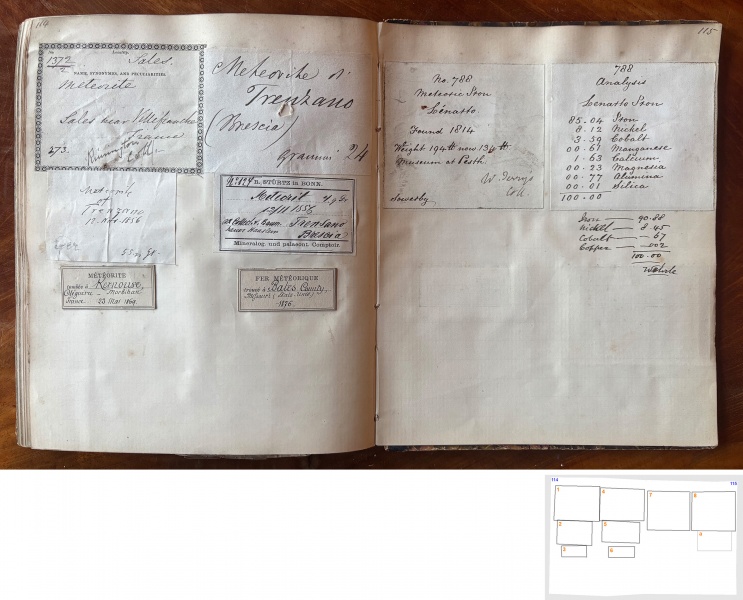 114
No. 1372/2
Locality,
Sales.
NAME, SYNONYMES, AND PECULIARITIES.
Meteorite
Sales near Villefranche
France
273.
Coll.
Meteorite di
Trenzano
(Brescia)
Grammi 24
Meteorite
of
Trenzano
12 Nov. 1856
B. STÜRTZ in BONN.
Meteorit
12/11 1856
Trenzano
Brescia
Mineralog. und palaeont. Comptoir.
MÉTÉORITE
tombée à Kernouve,
Cléguérec Morbihan
France 23 Mai 1869.
FER MÉTÉORIQUE
trouvé à Bates County,
Missouri (États-Unis)
1875
115
No. 788
Meteoric Iron
Lenatto.
Found 1814
Weight 194 lb now 134 lb
Museum at Pesth.
Coll.
Sowerby.
788
Analysis
Lenatto Iron
85.04 Iron
8.12 Nickel
3.59 Cobalt
00.61 Manganese
1.63 Calcium
00.23 Magnesia
00.77 Alumina
00.01 Silica
100.00
Iron — 90.88
Nickel — 8.45
Cobalt — 67
Copper — 002
100.00
Wehrle
114
115
1
2
3
4
5
6
7
8